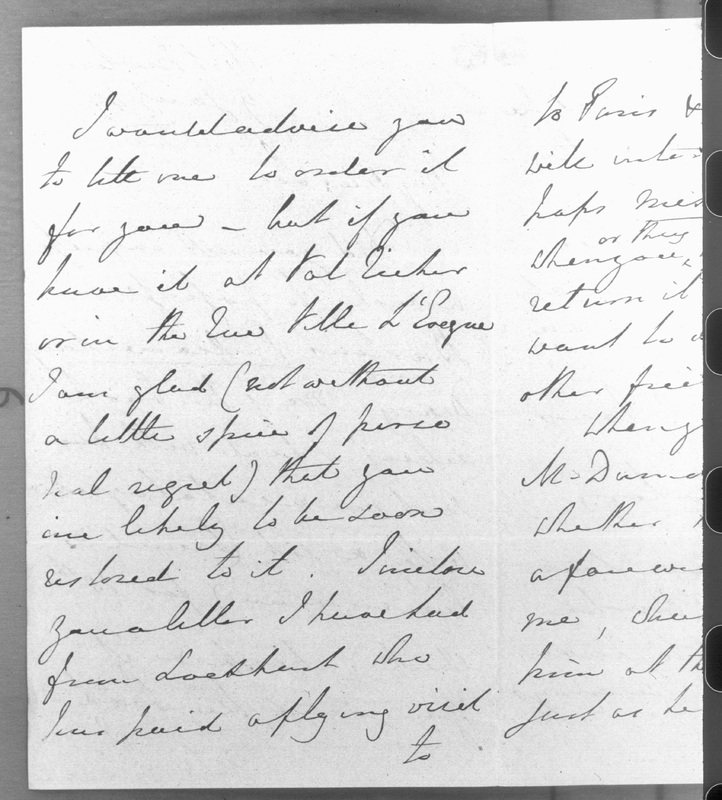 I would advise you
to let me to order it
for you – but if you
have it at Val Richer
or in the Rue Ville L'Eveque
I am glad (not without
a little spice of perso
nal regret) that you
are likely to be soon
restored to it. I inclose
you a letter I have had
from Lockhart who
has paid a flying visit
to
to Paris &
will
haps
or they
when you
return it
want to
other
When
Mr
whether
a
me,
him at
just as he